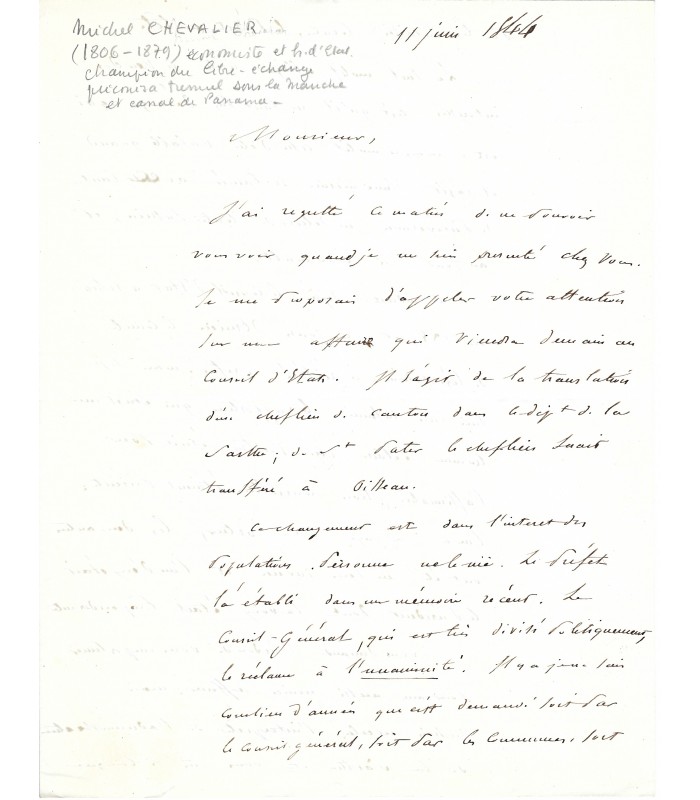 Michel CHEVALIER
(1806-1879) économiste et h. d'Etat
champion du libre-échange
préconisa tunnel sous la Manche
et canal de Panama -
11 juin 1844
Monsieur,
J'ai regretté ce matin de ne pouvoir
vous voir quand je me suis présenté chez vous.
Je me proposais d'appeler votre attention
sur une affaire qui viendra demain au
Conseil d'Etat. Il s'agit de la translation
d'un chef lieu de canton dans le dépt de la
Sarthe; de St Pater le chef lieu serait
transféré à Oisseau.
Ce changement est dans l'interet des
populations. Personne ne le nie. Le Préfet
l'a établi dans un mémoire récent. Le
Conseil-Général, qui est très divisé politiquement,
le réclame à l'unanimité. Il y a je ne sais
combien d'années que c'est demandé soit par
le conseil général, soit par les communes, soit